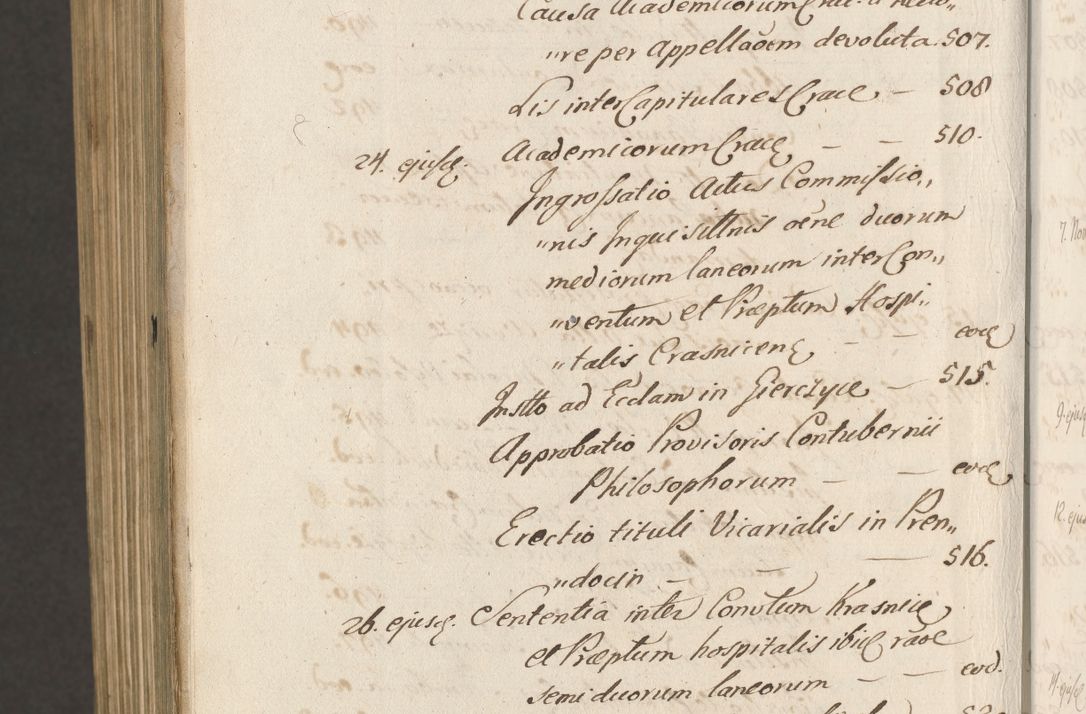 Causa Academicorum Crac: a
„re per appellaõem devoluta. 507.
Lis inter Capitulares Crace — 508
Academicorum Crace — — 510.
24. ejusq. Ingrossatio Actus Commissio„
„nis Inquisittnis oẽne duorum
mediorum laneorum inter Con„
„ventum et Præptum Hospi„
„talis Crasnicenq — — eoq
Instto ad Ecclam in Gierczyce — 515.
Approbatio Provisoris Contubernii
Philosophorum — — eoq
Erectio tituli Vicarialis in Pren„
„docin — — — 516.
26. ejusq. Sententia inter Convtum Krasnice
et Præptum hospitalis ibiq raõe
semi duorum laneorum — — eod.